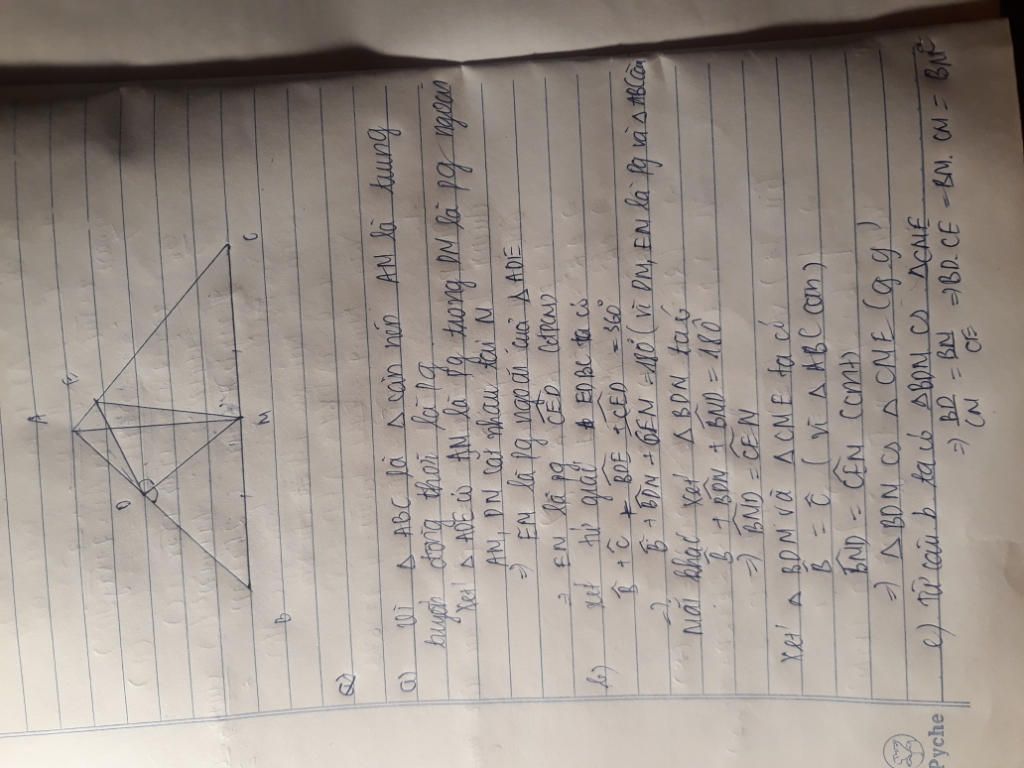 A
E
D
B
N
C
a)
Vì △ ABC là △ cân nên AN là trung
tuyến đồng thời là pg
Xét △ ADE có AN là pg trong DN là pg ngoài
AN, DN cắt nhau tại N
⇒ EN là pg ngoài của △ ADE
⇒ EN là pg CED (đpcm)
b) xét tứ giác EDBC ta có
B̂ + Ĉ + BDE + CED = 360°
⇒ B̂ + BDN + CEN = 180° (vì DN, EN là pg và △ ABC cân
Mặt khác xét △ BDN ta có
B̂ + BDN + BND = 180°
⇒ BND = CEN
Xét △ BDN và △ CNE ta có
B̂ = Ĉ (vì △ ABC cân)
BND = CEN (cmt)
⇒ △ BDN ∽ △ CNE (g g)
c) Từ câu b ta có △ BDN ∽ △ CNE
⇒ BD/CN = BN/CE ⇒ BD.CE = BN.CN = BN²
Pyche